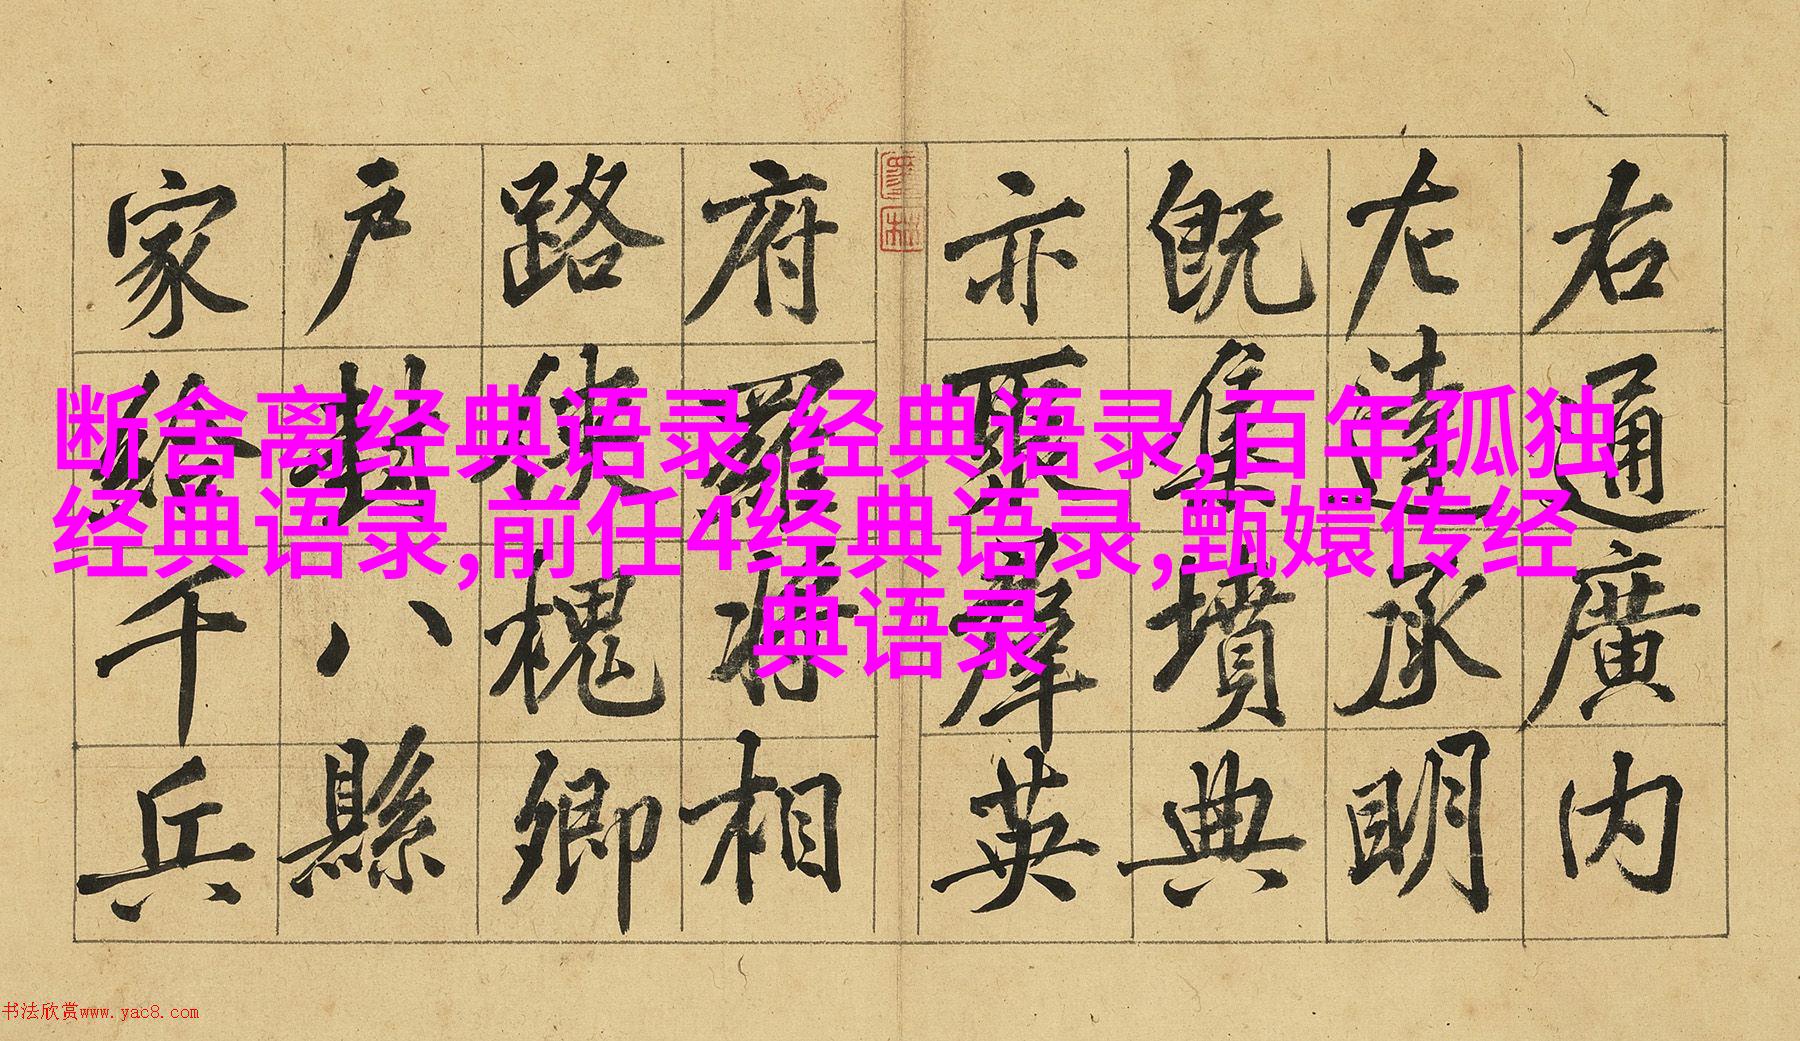 右通廣内
左達承明
既集墳典
亦聚羣英
府羅将相
路俠槐卿
户封八縣
家給千兵
断舍离经典语录,经典语录,百年孤独
经典语录,前任4经典语录,甄嬛传经
典语录
书法欣赏www.yac8.com